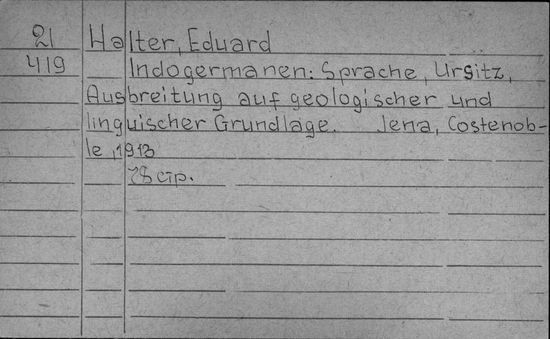 21 Halter, Eduard
419 Indogermanen: Sprache, Ursitz,
Ausbreitung auf geologischer und
linguischer Grundlage. Jena, Costenob-
le, 1913
78 стр.